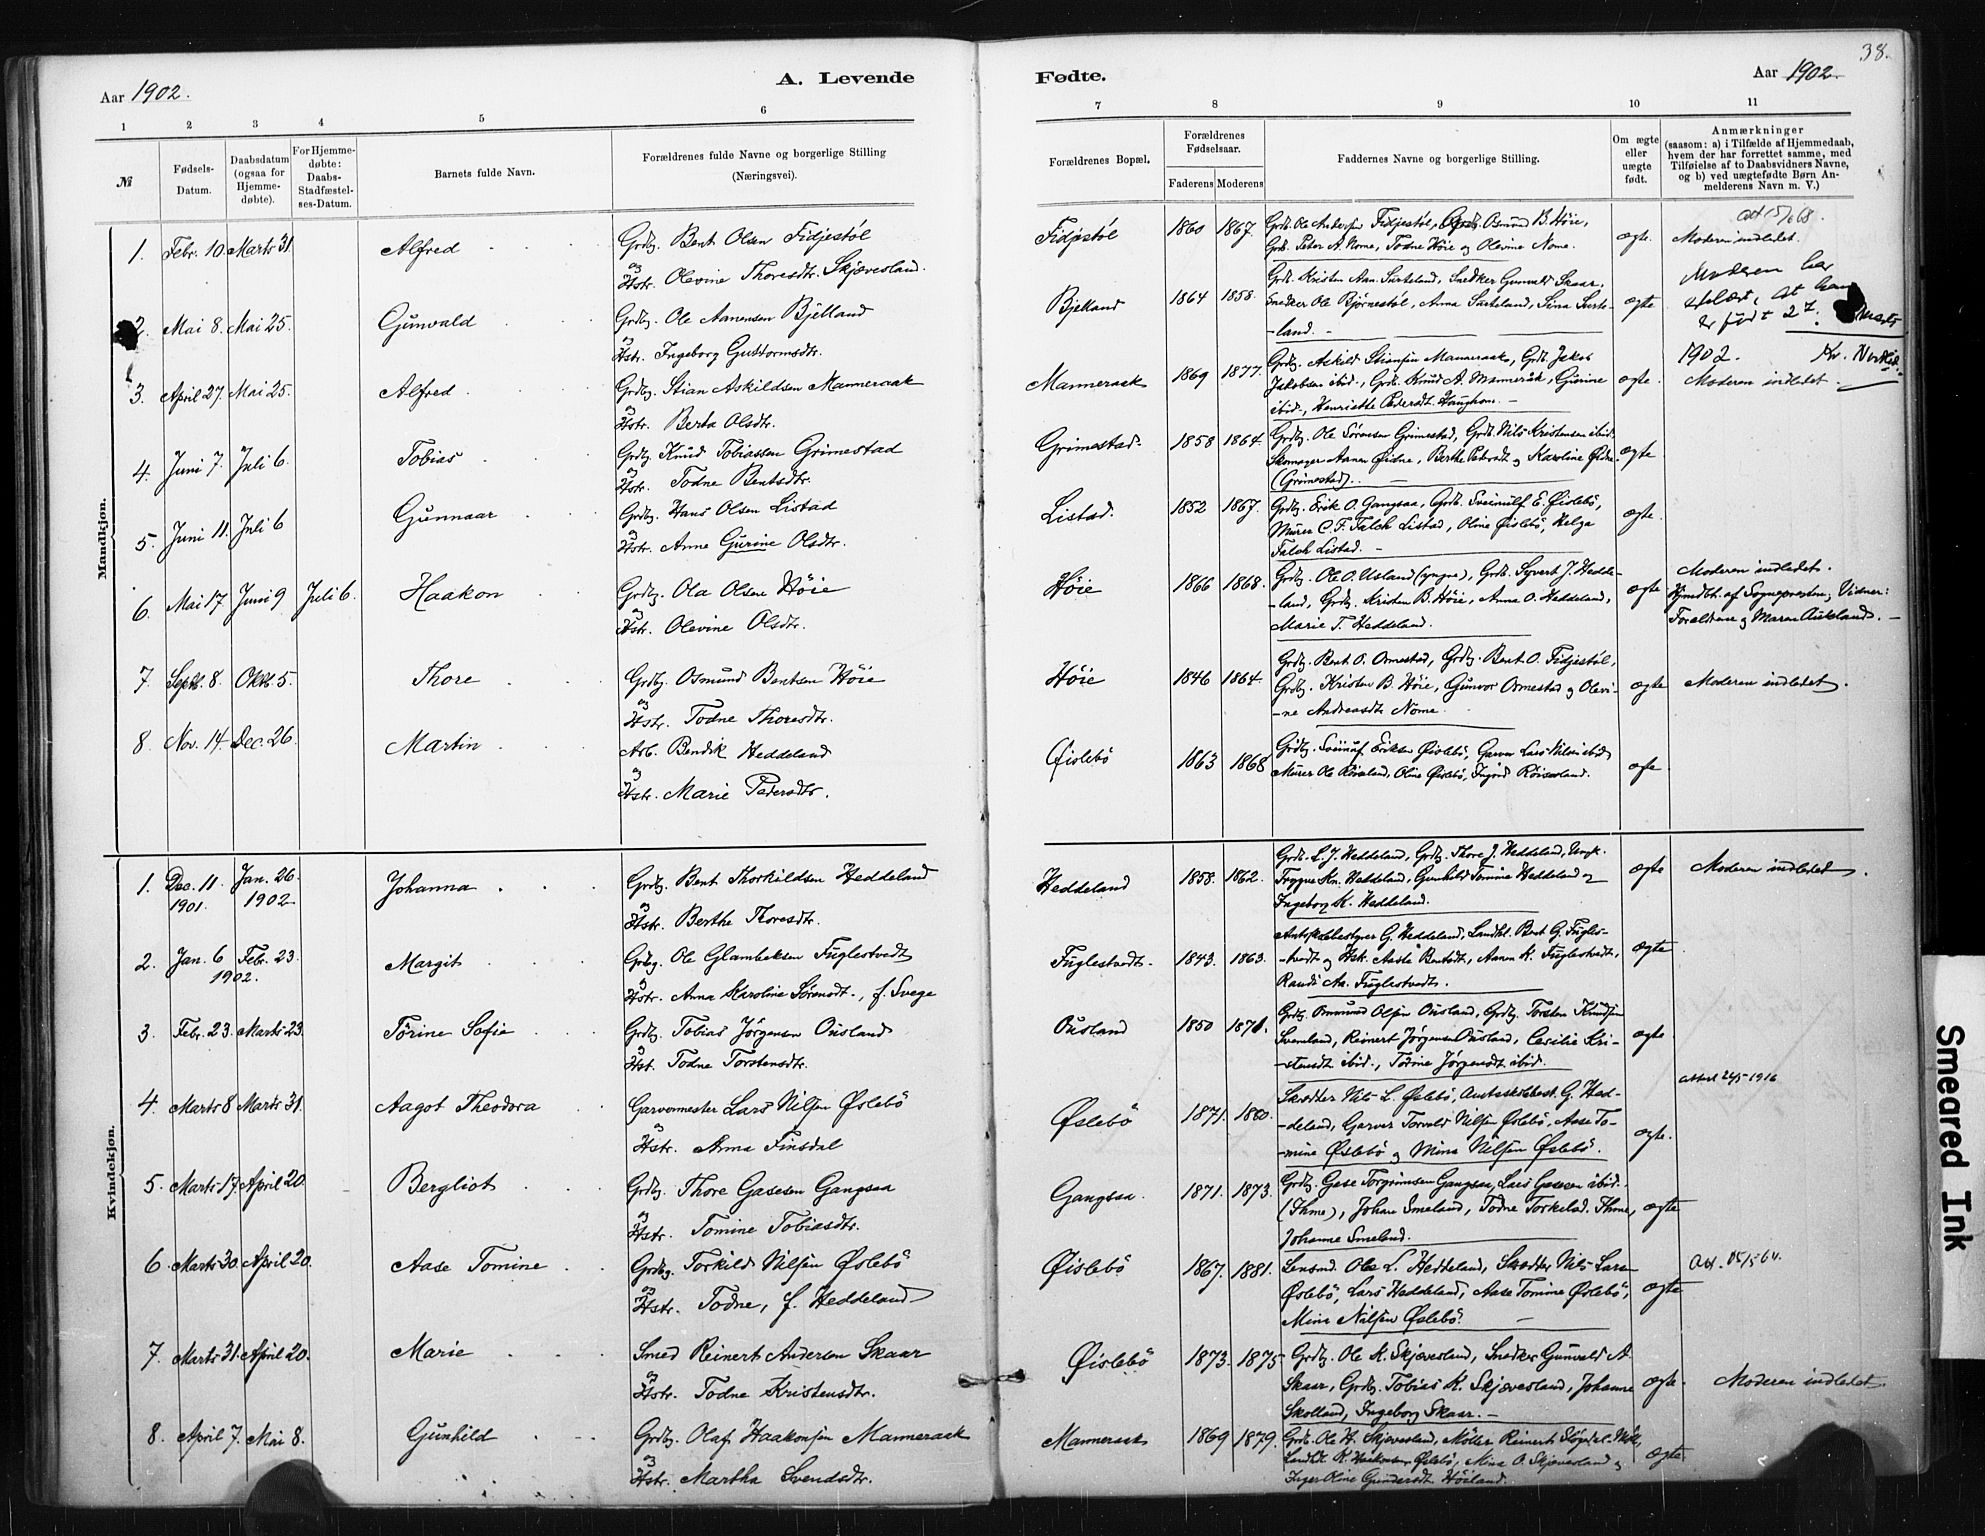 38.
Aar 1902.
A. Levende
Fødte.
Aar 1902
1 2 3 4 5 6 7 8 9 10 11
№
Fødsels-
Datum.
Daabsdatum
(ogsaa for
Hjemme-
døbte).
For Hjemme-
døbte:
Daabs-
Stadfæstel-
ses-Datum.
Barnets fulde Navn.
Forældrenes fulde Navne og borgerlige Stilling
(Næringsvei).
Forældrenes Bopæl.
Forældrenes
Fødselsaar.
Faderens Moderens
Faddernes Navne og borgerlige Stilling.
Om ægte
eller
uægte
født.
Anmærkninger
(saasom: a) i Tilfælde af Hjemmedaab,
hvem der har forrettet samme, med
Tilføielse af to Daabsvidners Navne,
og b) ved uægtefødte Børn An-
melderens Navn m. V.)
Mandkjøn.
1. Febr. 10. Marts 31. Alfred Grdbg. Bent Olsen Fidjestøl
og Hstr. Olevine Thoresdtr. Skjævesland.
Fidjestøl 1860 1867. Grdb. Ole Andersen Fidjestøl, Grdb. Osmund B. Høie,
Grdb. Peter A. Nome, Todne Høie og Olevine Nome.
ægte. Moderen indledet.
2. Mai 8. Mai 25. Gunvald Grdbg. Ole Aanensen Bjelland
og Hstr. Ingeborg Guttormsdtr.
Bjelland 1864 1858. Grdb. Kristen Aan. Surteland, Snedker Gunvald Skaar,
Snedker Ole Bjørnestøl, Anna Surteland, Sina Surte-
-land. -
ægte Moderen har
erklært, at han
er født 27.
1902. Kv.
3. April 27. Mai 25. Alfred. Grdbg. Stian Askildsen Manneraak
og Hstr. Berta Olsdtr.
Manneraak 1869 1877. Grdbg. Askild Stiansen Manneraak, Grdb. Jakob
Jakobsen ibid., Grdb. Knud A. Manneraak, Gurine
ibid., Henriette Pedersdt. Haughom. -
ægte. Moderen indledet.
4. Juni 7. Juli 6. Tobias Grdbg. Knud Tobiassen Grimestad
og Hstr. Todne Bentsdtr.
Grimestad. 1858 1864. Grdbg. Ole Sørensen Grimestad, Grdb. Nils Kristensen ibid.
Skomager Aanen Øidne, Berthe Pedersdt. og Karoline Øidne
(Grimestad).
ægte
5. Juni 11. Juli 6 Gunnaar Grdbg. Hans Olsen Listad
og Hstr. Anne Gurine Olsdtr.
Listad. 1852 1867. Grdbg. Erik O. Gangsaa, Grdb. Sveinulf E. Øislebö,
Murer C. F. Falch Listad, Oline Øislebö, Helga
Falch Listad. -
ægte.
6. Mai 17 Juni 9 Juli 6. Haakon Grdbg. Ola Olsen Höie
og Hstr. Olevine Olsdtr.
Höie 1866 1868. Grdbg. Ole O. Usland (yngre), Grdb. Syvert J. Hedde-
-land, Grdbg. Kristen B. Høie, Anna O. Heddeland,
Marie T. Heddeland.
ægte Moderen indledet.
Hjmdbt. af Sognepresten; Vidner:
Forældrene og Maren Aukland. -
7. Septb. 8. Oktb. 5. Thore Grdbg. Osmund Bentsen Höie
og Hstr. Todne Thoresdtr.
Höie 1846 1864. Grdbg. Bent O. Ormestad, Grdbg. Bent O. Fidjestøl,
Grdbg. Kristen B. Høie, Gunvor Ormestad og Olevi-
-ne Andreasdtr Nome.
ægte Moderen indledet.
8. Nov. 14. Dec. 26. Martin Arb. Bendik Heddeland
og Hstr. Marie Pedersdtr.
Øislebö 1863 1868 Grdbg. Sveinulf Eriksen Øislebö, Garver Lars Nilsen ibid
Murer Ole Røiseland, Oline Øislebö, Ingrid Røiseland.
ægte.
Kvindekjøn.
1. Dec. 11. 1901. Jan. 26. 1902 Johanna Grdbg. Bent Thorkildsen Heddeland
og Hstr. Berthe Thoresdtr.
Heddeland 1858. 1862. Grdb. L. J. Heddeland, Grdbg. Thore J. Heddeland, Ungk.
Trygve Kn. Heddeland, Gunhild Tomine Heddeland og
Ingeborg K. Heddeland.
ægte Moderen indledet.
2. Jan. 6 Febr. 23. 1902. Margit Grdbg. Ole Glambeksen Fuglestvedt
og Hstr. Anna Karoline Sørensdt., f. Svege
Fuglestvedt. 1843. 1863. Amtsskolebestyrer G. Heddeland, Landhl. Bent G. Fugles-
-tvedt og Hst. Aasle Bentsdt, Aanen K. Fuglestvedt,
Randi Aa. Fuglestvedt.
ægte
3. Febr. 23. Marts 23. Törine Sofie Grdbg. Tobias Jörgensen Ousland
og Hst. Todne Torstensdtr.
Ousland 1850 1871. Grdbg. Osmund Olsen Ousland, Grdbg. Torsten Knudsen
Sveinland, Reinert Jørgensen Ousland, Cecilie Kri-
-stensdt ibid., Todine Jørgensdt ibid.
ægte.
4. Marts 8 Marts 31. Aagot Theodora Garvermester Lars Nilsen Øslebö
og Hstr. Anna Finsdal
Øslebö 1871. 1880. Skrædder Nils L. Øslebö, Amtsskolebest. G. Hed-
-deland, Garver Torvald Nilsen Øslebö, Aase To-
-mine Øslebö og Mina Nilsen Øslebö.
ægte. attest 24/5-1916
5. Marts 17. April 20. Bergliot Grdbg. Thore Gasesen Gangsaa
og Hstr. Tomine Tobiasdtr.
Gangsaa. 1871. 1873. Grdbg. Gase Torgrimsen Gangsaa, Lars Gasesen ibid.
(Thme), Johan Smeland, Todne Torkelsd. Thme,
Johanne Smeland.
ægte
6. Marts 30. April 20. Aase Tomine Grdbg. Torkild Nilsen Øslebö
og Hstr. Todne, f. Heddeland
Øislebö 1867. 1881. Lensmd. Ole L. Heddeland, Skrædder Nils Larsen
Øslebö, Lars Heddeland, Aase Tomine Øslebö,
Mina Nilsen Øslebö. -
ægte
7. Marts 31. April 20. Marie Smed Reinert Andersen Skaar
og Hstr. Todne Kristensdtr.
Øislebö 1873. 1875 Grdbg. Ole K. Skjævesland, Snedker Gunvald A.
Skaar, Grdbg. Tobias K. Skjævesland, Johanne
Skolland, Ingeborg Skaar. -
ægte. Moderen indledet.
8. April 7. Mai 8. Gunhild Grdbg. Olaf Haakonsen Manneraak
og Hstr. Martha Svendsdtr.
Manneraak 1869 1879. Grdb. Ole H. Skjævesland, Møller Reinert
Øslebö, Mina O. Skjævesland og
Inger Oline Gundersdt Höiland.
ægte
Smeared Ink